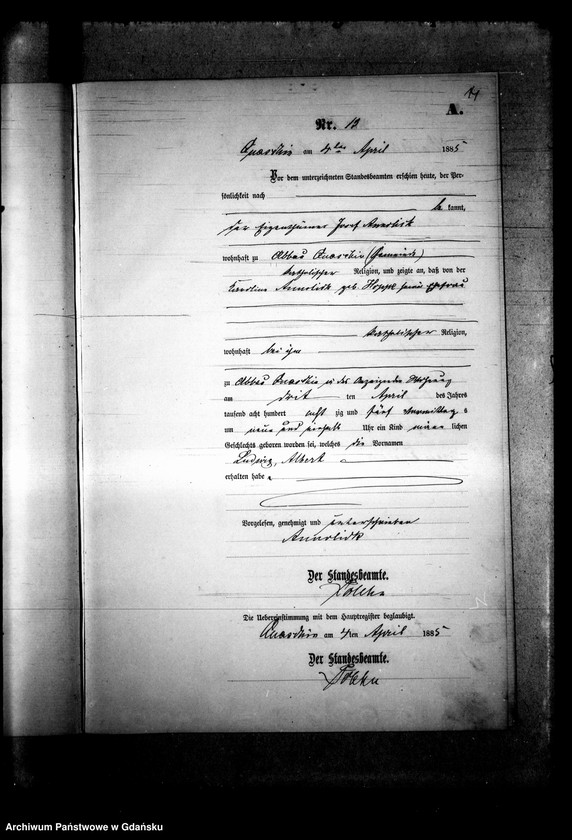 A.
Nr. 13
am 4ten April 1885
Vor dem unterzeichneten Standesbeamten erschien heute, der Per-
sönlichkeit nach
be kannt,
der Eigenthümer Josef
wohnhaft zu Abbau (Gemeinde)
katholischer Religion, und zeigte an, daß von der
geb. Hoppe seine Ehefrau
katholischer Religion,
wohnhaft bei ihm
zu Abbau in des Anzeigenden Wohnung
am dritten April des Jahres
tausend acht hundert acht zig und fünf Vormittags
um neun und einhalb Uhr ein Kind männ lichen
Geschlechts geboren worden sei, welches die Vornamen
Ludwig, Albert
erhalten habe.
Vorgelesen, genehmigt und unterschrieben
Der Standesbeamte.
Die Uebereinstimmung mit dem Hauptregister beglaubigt.
am 4ten April 1885
Der Standesbeamte.
Archiwum Państwowe w Gdańsku